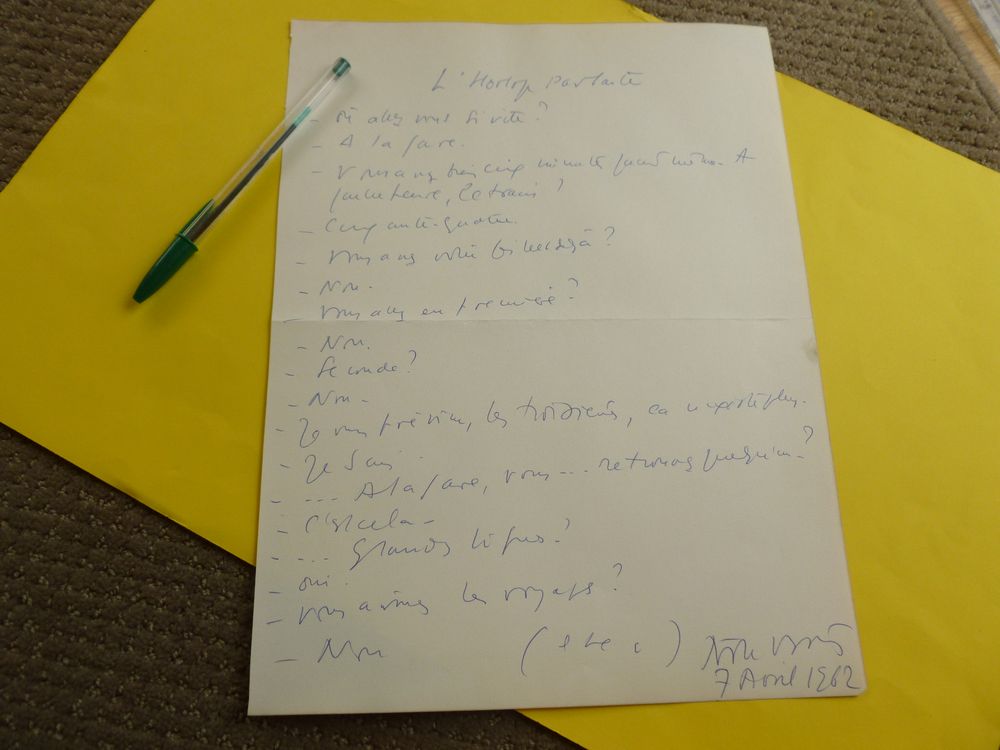 L'Horloge parlante
- Où allez vous si vite?
- A la gare.
- Vous avez cinq minutes quand même. A
quelle heure, le train?
- Cinquante-quatre.
- Vous avez votre billet déjà?
- Non.
- Vous allez en première?
- Non.
- Seconde?
- Non -
- Je vous préviens, les troisièmes, ça n'existe plus.
- Je sais.
- ... A la gare, vous ... retrouvez quelqu'un?
- C'est cela -
- ... Grandes lignes?
- oui.
- Vous aimez les voyages?
- Non (etc)
7 Avril 1962